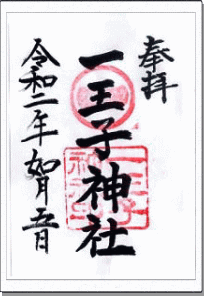 奉拝
一王子神社
令和二年如月五日